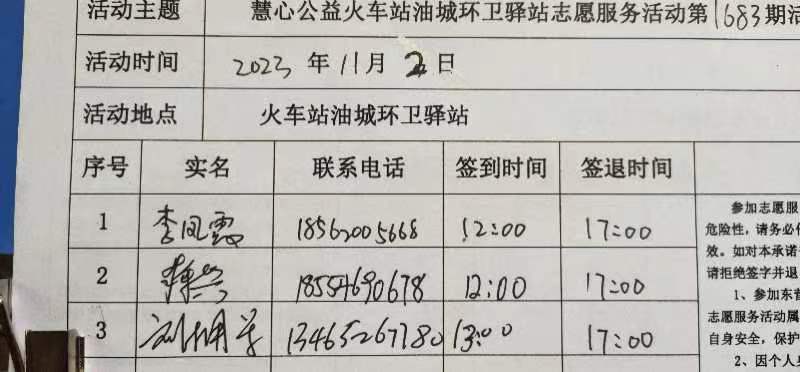 活动主题 慧心公益火车站油城环卫驿站志愿服务活动第1683期活
活动时间 2023年11月2日
活动地点 火车站油城环卫驿站
序号 实名 联系电话 签到时间 签退时间
1 李凤霞 18562005668 12:00 17:00
2 18554690678 12:00 17:00
3 13465267780 13:00 17:00
参加志愿服
危险性，请务必
效。如对本承诺
请拒绝签字并退
1、参加东营
志愿服务活动属
自身安全，保护
2、因个人